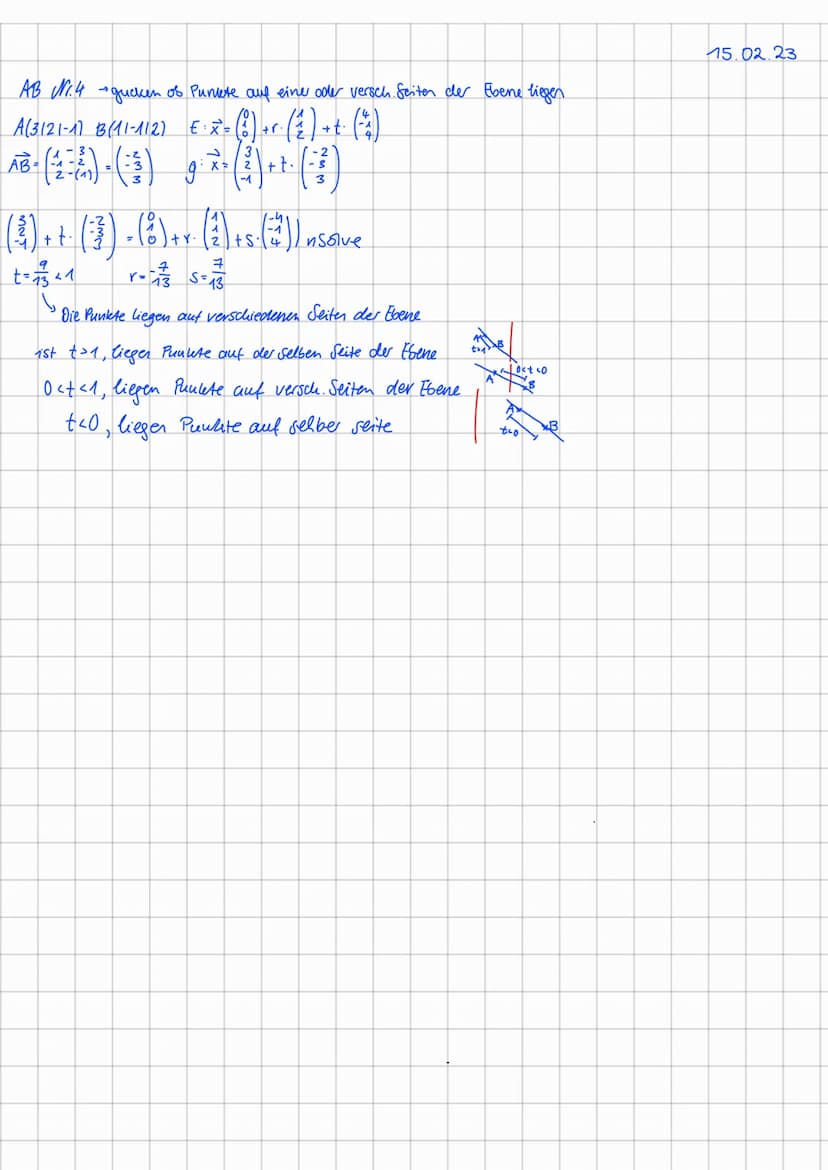 15.02.23
AB Nr.4 → gucken ob Punkte auf einer oder versch. Seiten der Ebene liegen
A(3|2|-1) B(1|-1|2) E: x⃗ = (0 1 0) + r · (1 1 2) + t · (4 -1 4)
AB⃗ = (1 - 3 -1 - 2 2 - (-1)) = (-2 -3 3) g: x⃗ = (3 2 -1) + t · (-2 -3 3)
(3 2 -1) + t · (-2 -3 3) = (0 1 0) + r · (1 1 2) + s · (-4 -1 4) ) nsolve
t = 9/13 < 1 r = -7/13 s = 7/13
↳ Die Punkte liegen auf verschiedenen Seiten der Ebene
ist t>1, liegen Punkte auf der selben Seite der Ebene
0<t<1, liegen Punkte auf versch. Seiten der Ebene
t<0, liegen Punkte auf selber seite
A B
A 0<t<0 B
A t<0 B